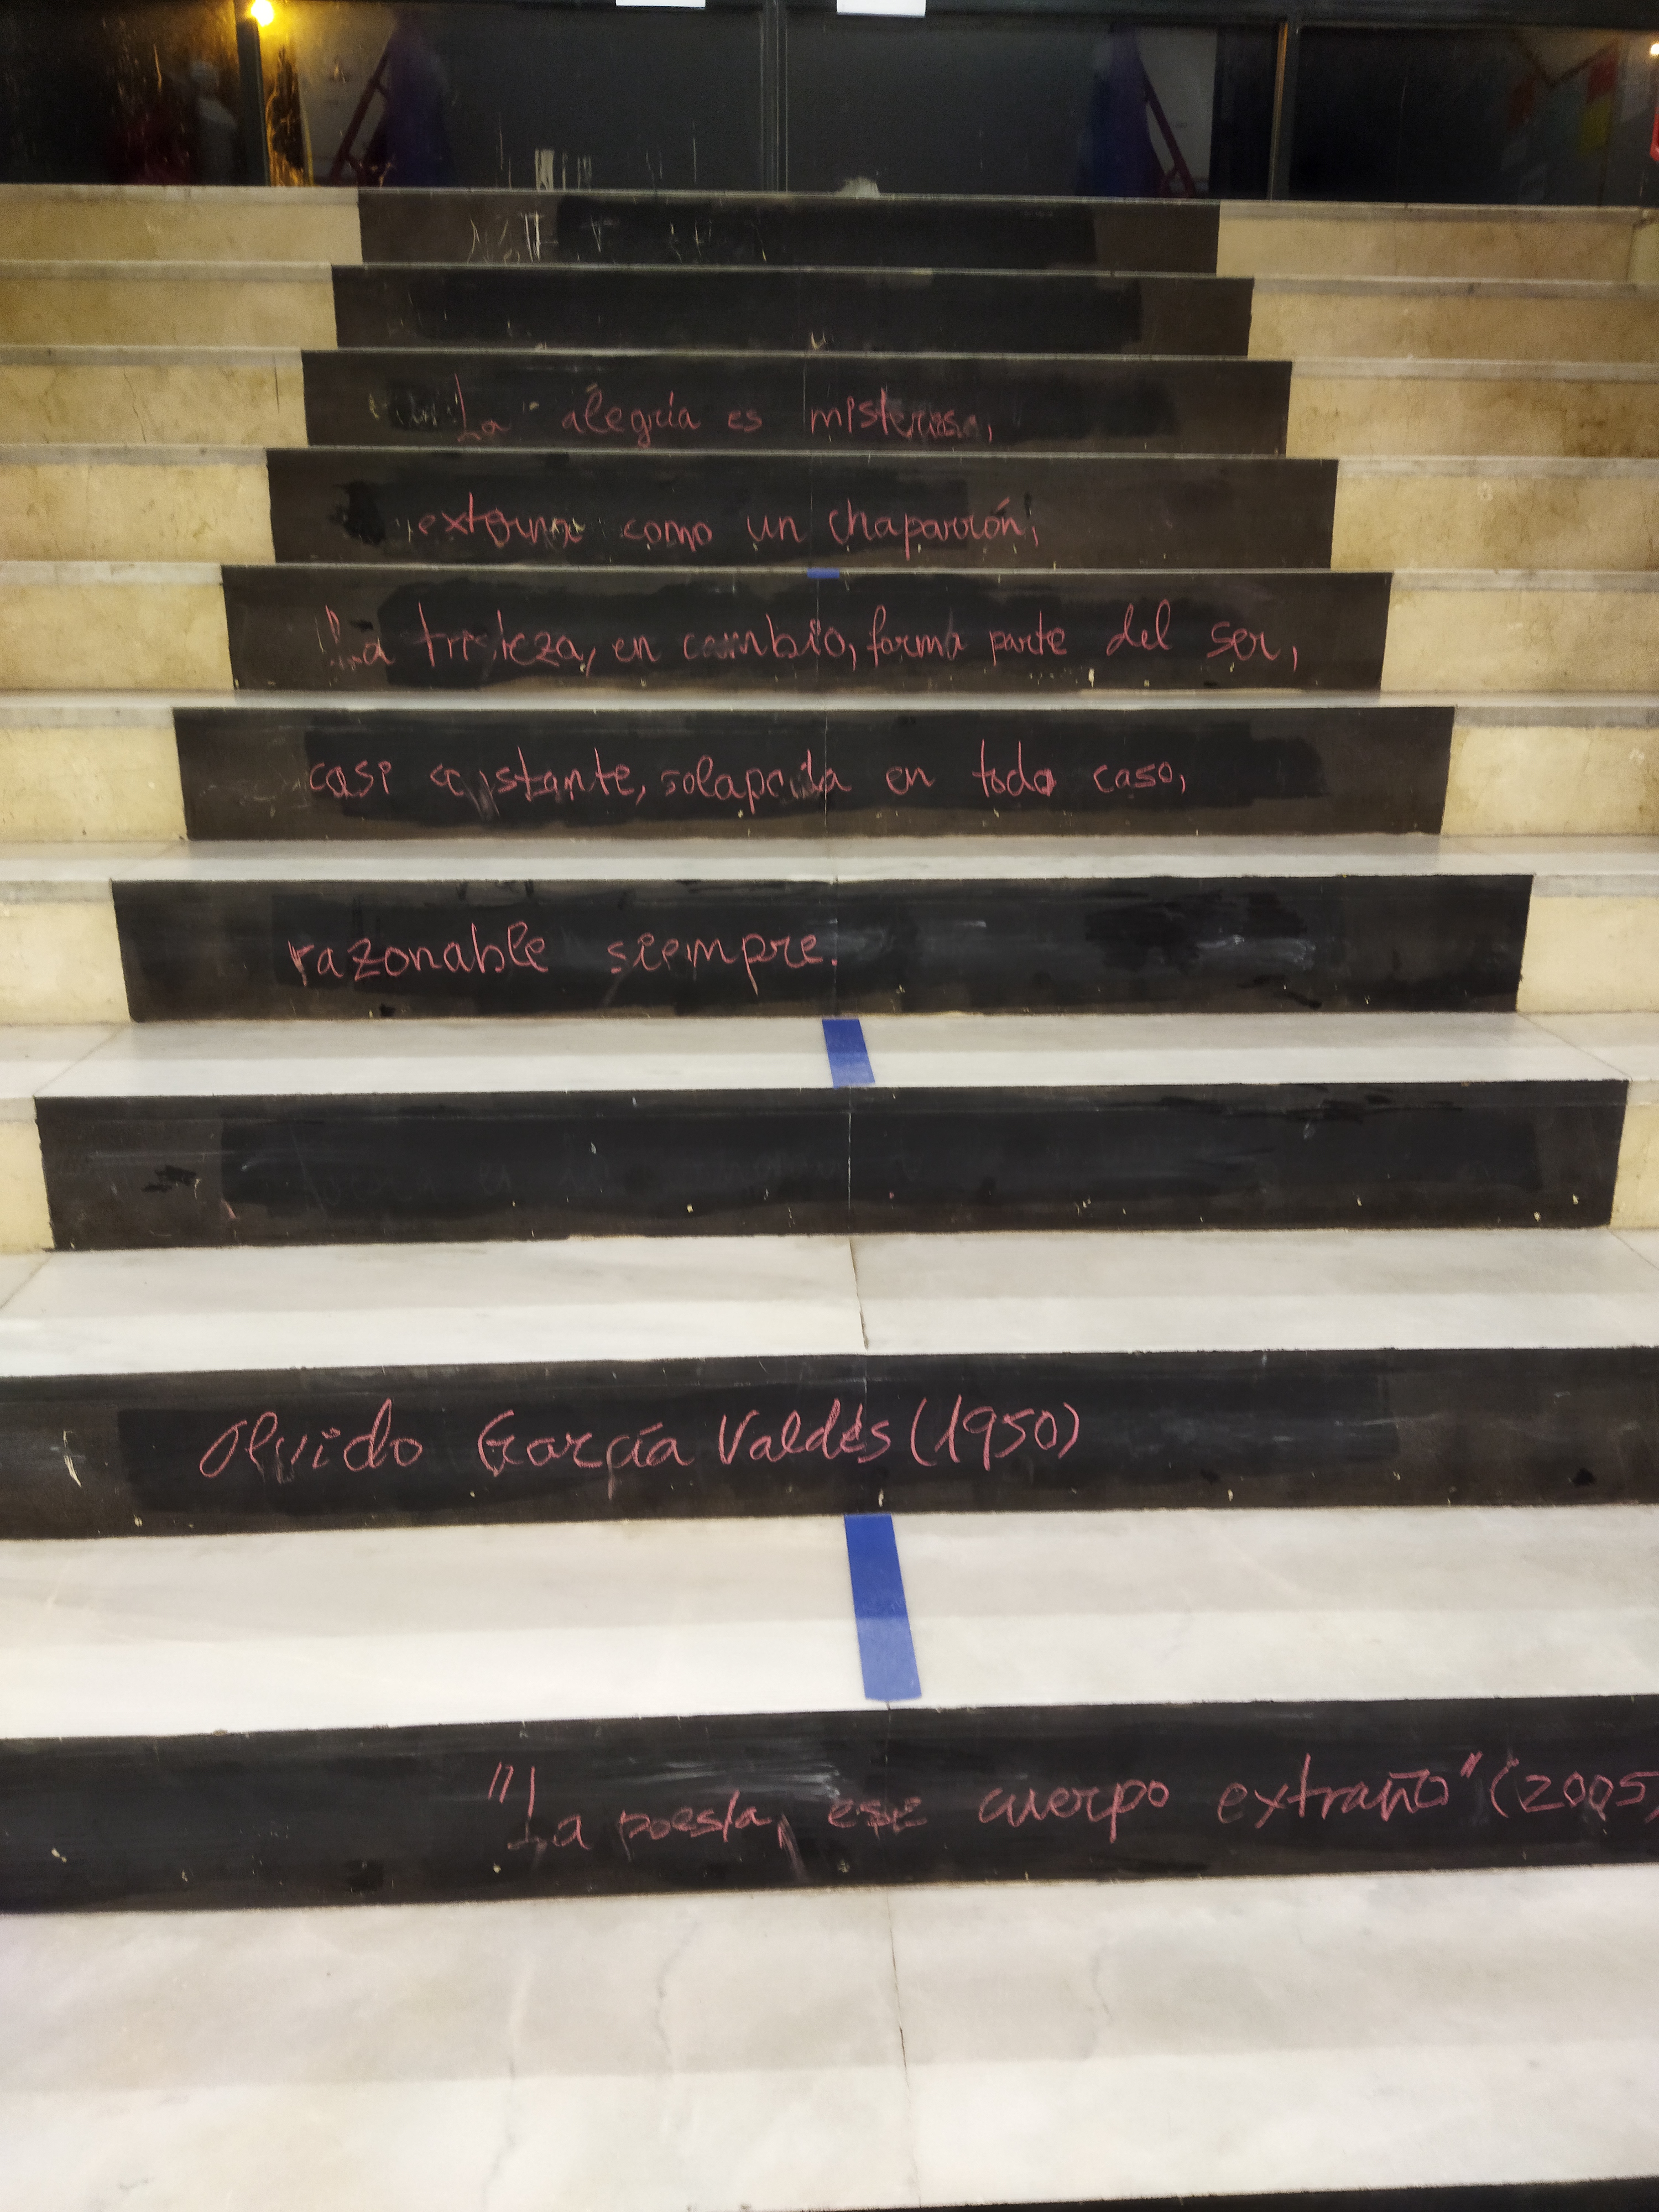 La alegría es misteriosa,
externa como un chaparrón;
La tristeza, en cambio, forma parte del ser,
casi constante, solapada en todo caso,
razonable siempre.
Olvido García Valdés (1950)
"La poesía, ese cuerpo extraño" (2005)